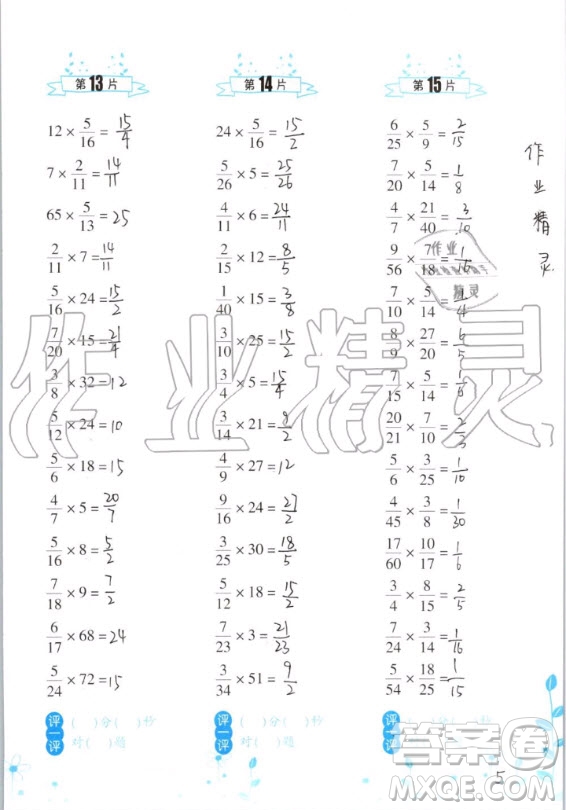 第13片
12 × 5/16 = 15/4
7 × 2/11 = 14/11
65 × 5/13 = 25
2/11 × 7 = 14/11
5/16 × 24 = 15/2
7/20 × 15 = 21/4
3/8 × 32 = 12
5/12 × 24 = 10
5/6 × 18 = 15
4/7 × 5 = 20/7
5/16 × 8 = 5/2
7/18 × 9 = 7/2
6/17 × 68 = 24
5/24 × 72 = 15
评一评
( )分( )秒
对( )题
第14片
24 × 5/16 = 15/2
5/26 × 5 = 25/26
4/11 × 6 = 24/11
2/15 × 12 = 8/5
1/40 × 15 = 3/8
3/10 × 25 = 15/2
3/4 × 5 = 15/4
3/14 × 21 = 9/2
4/9 × 27 = 12
9/16 × 24 = 27/2
3/25 × 30 = 18/5
5/12 × 18 = 15/2
7/23 × 3 = 21/23
3/34 × 51 = 9/2
评一评
( )分( )秒
对( )题
第15片
6/25 × 5/9 = 2/15
7/20 × 5/14 = 1/8
4/7 × 21/40 = 3/10
9/56 × 7/18 = 1/16
7/10 × 5/14 = 1/4
8/9 × 27/20 = 6/5
7/15 × 5/14 = 1/6
20/21 × 7/10 = 2/3
5/6 × 3/25 = 1/10
4/45 × 3/8 = 1/30
17/60 × 10/17 = 1/6
3/4 × 8/15 = 2/5
7/24 × 3/14 = 1/16
5/54 × 18/25 = 1/15
评一评
作业精灵
作业
精灵
作业精灵
答案圈
MXQE.COM
5